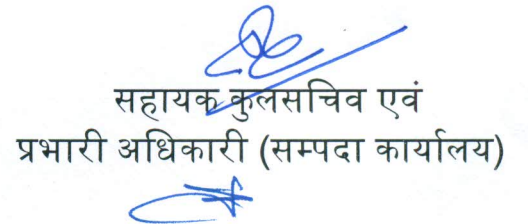 सहायक कुलसचिव एवं
प्रभारी अधिकारी (सम्पदा कार्यालय)